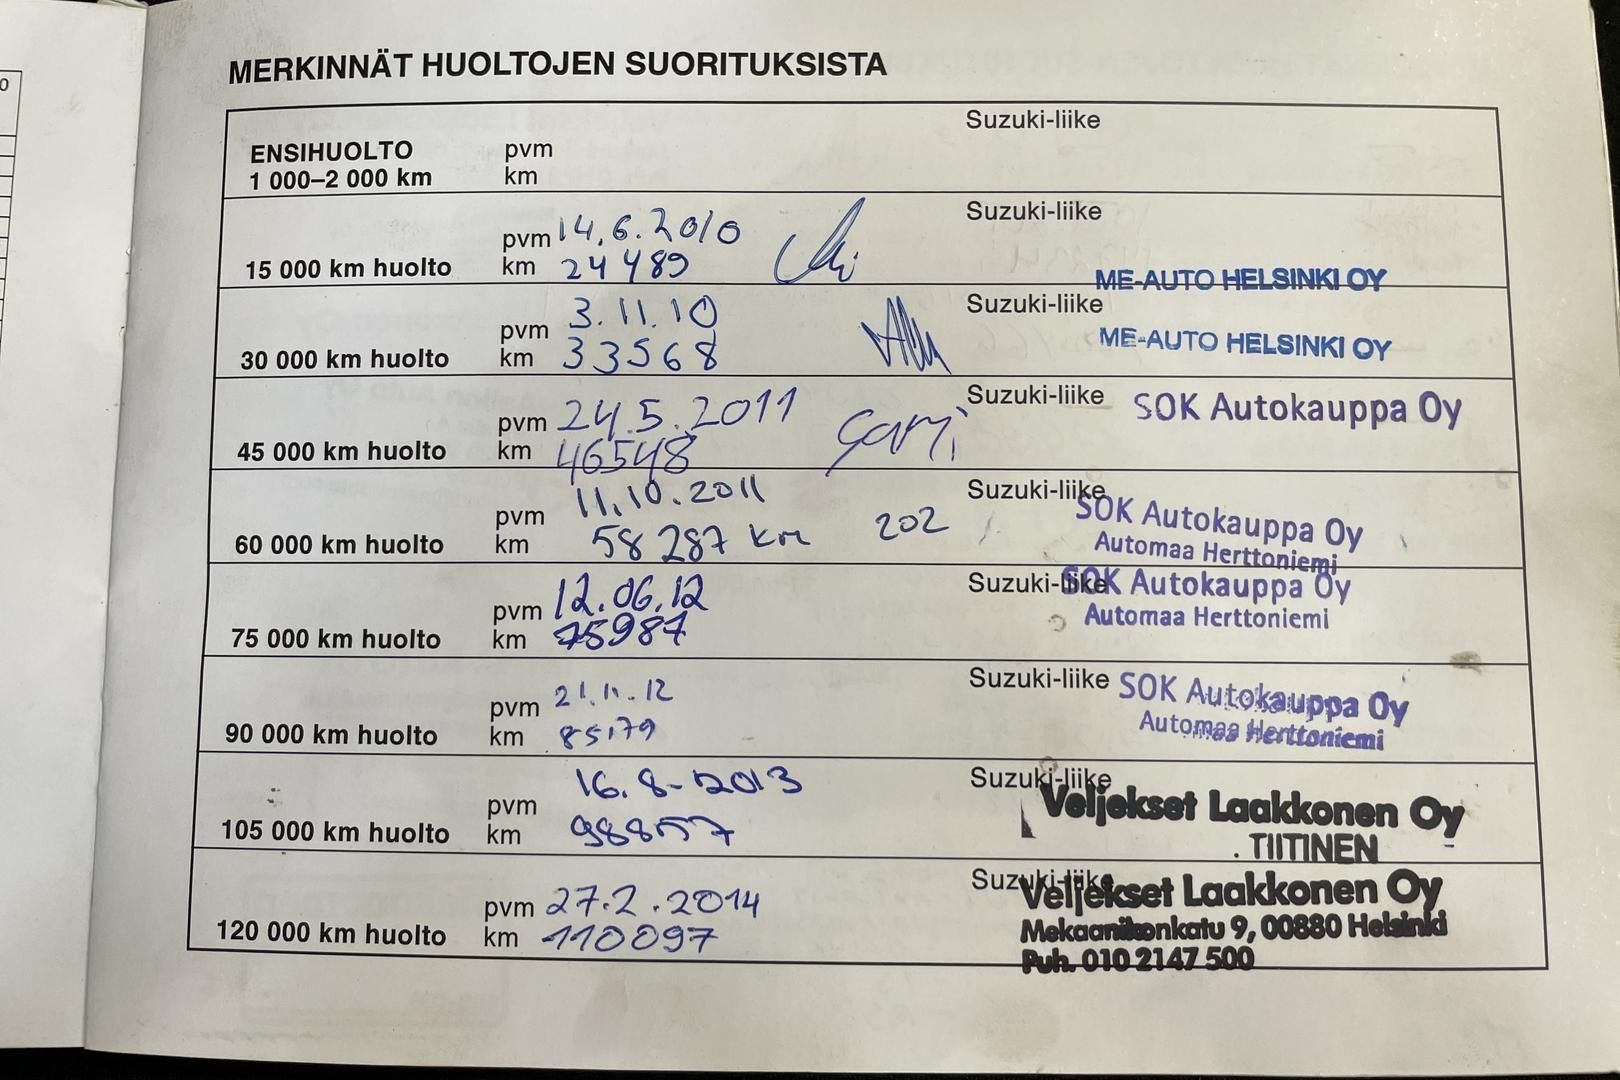 0
MERKINNÄT HUOLTOJEN SUORITUKSISTA
Suzuki-liike
ENSIHUOLTO pvm
1 000–2 000 km km
Suzuki-liike
pvm 14.6.2010
15 000 km huolto km 24489
ME-AUTO HELSINKI OY
Suzuki-liike
pvm 3.11.10
ME-AUTO HELSINKI OY
30 000 km huolto km 33568
Suzuki-liike SOK Autokauppa Oy
pvm 24.5.2011
45 000 km huolto km 46548
Suzuki-liike
SOK Autokauppa Oy
pvm 11.10.2011
60 000 km huolto km 58 287 km 202
Automaa Herttoniemi
Suzuki-liike SOK Autokauppa Oy
pvm 12.06.12
Automaa Herttoniemi
75 000 km huolto km 75987
Suzuki-liike SOK Autokauppa Oy
pvm 21.11.12
Automaa Herttoniemi
90 000 km huolto km 85179
Suzuki-liike
pvm 16.8-2013
Veljekset Laakkonen Oy
105 000 km huolto km 98857
TIITINEN
Suzuki-liike
Veljekset Laakkonen Oy
pvm 27.2.2014
Mekaanikonkatu 9, 00880 Helsinki
120 000 km huolto km 110097
Puh. 010 2147 500